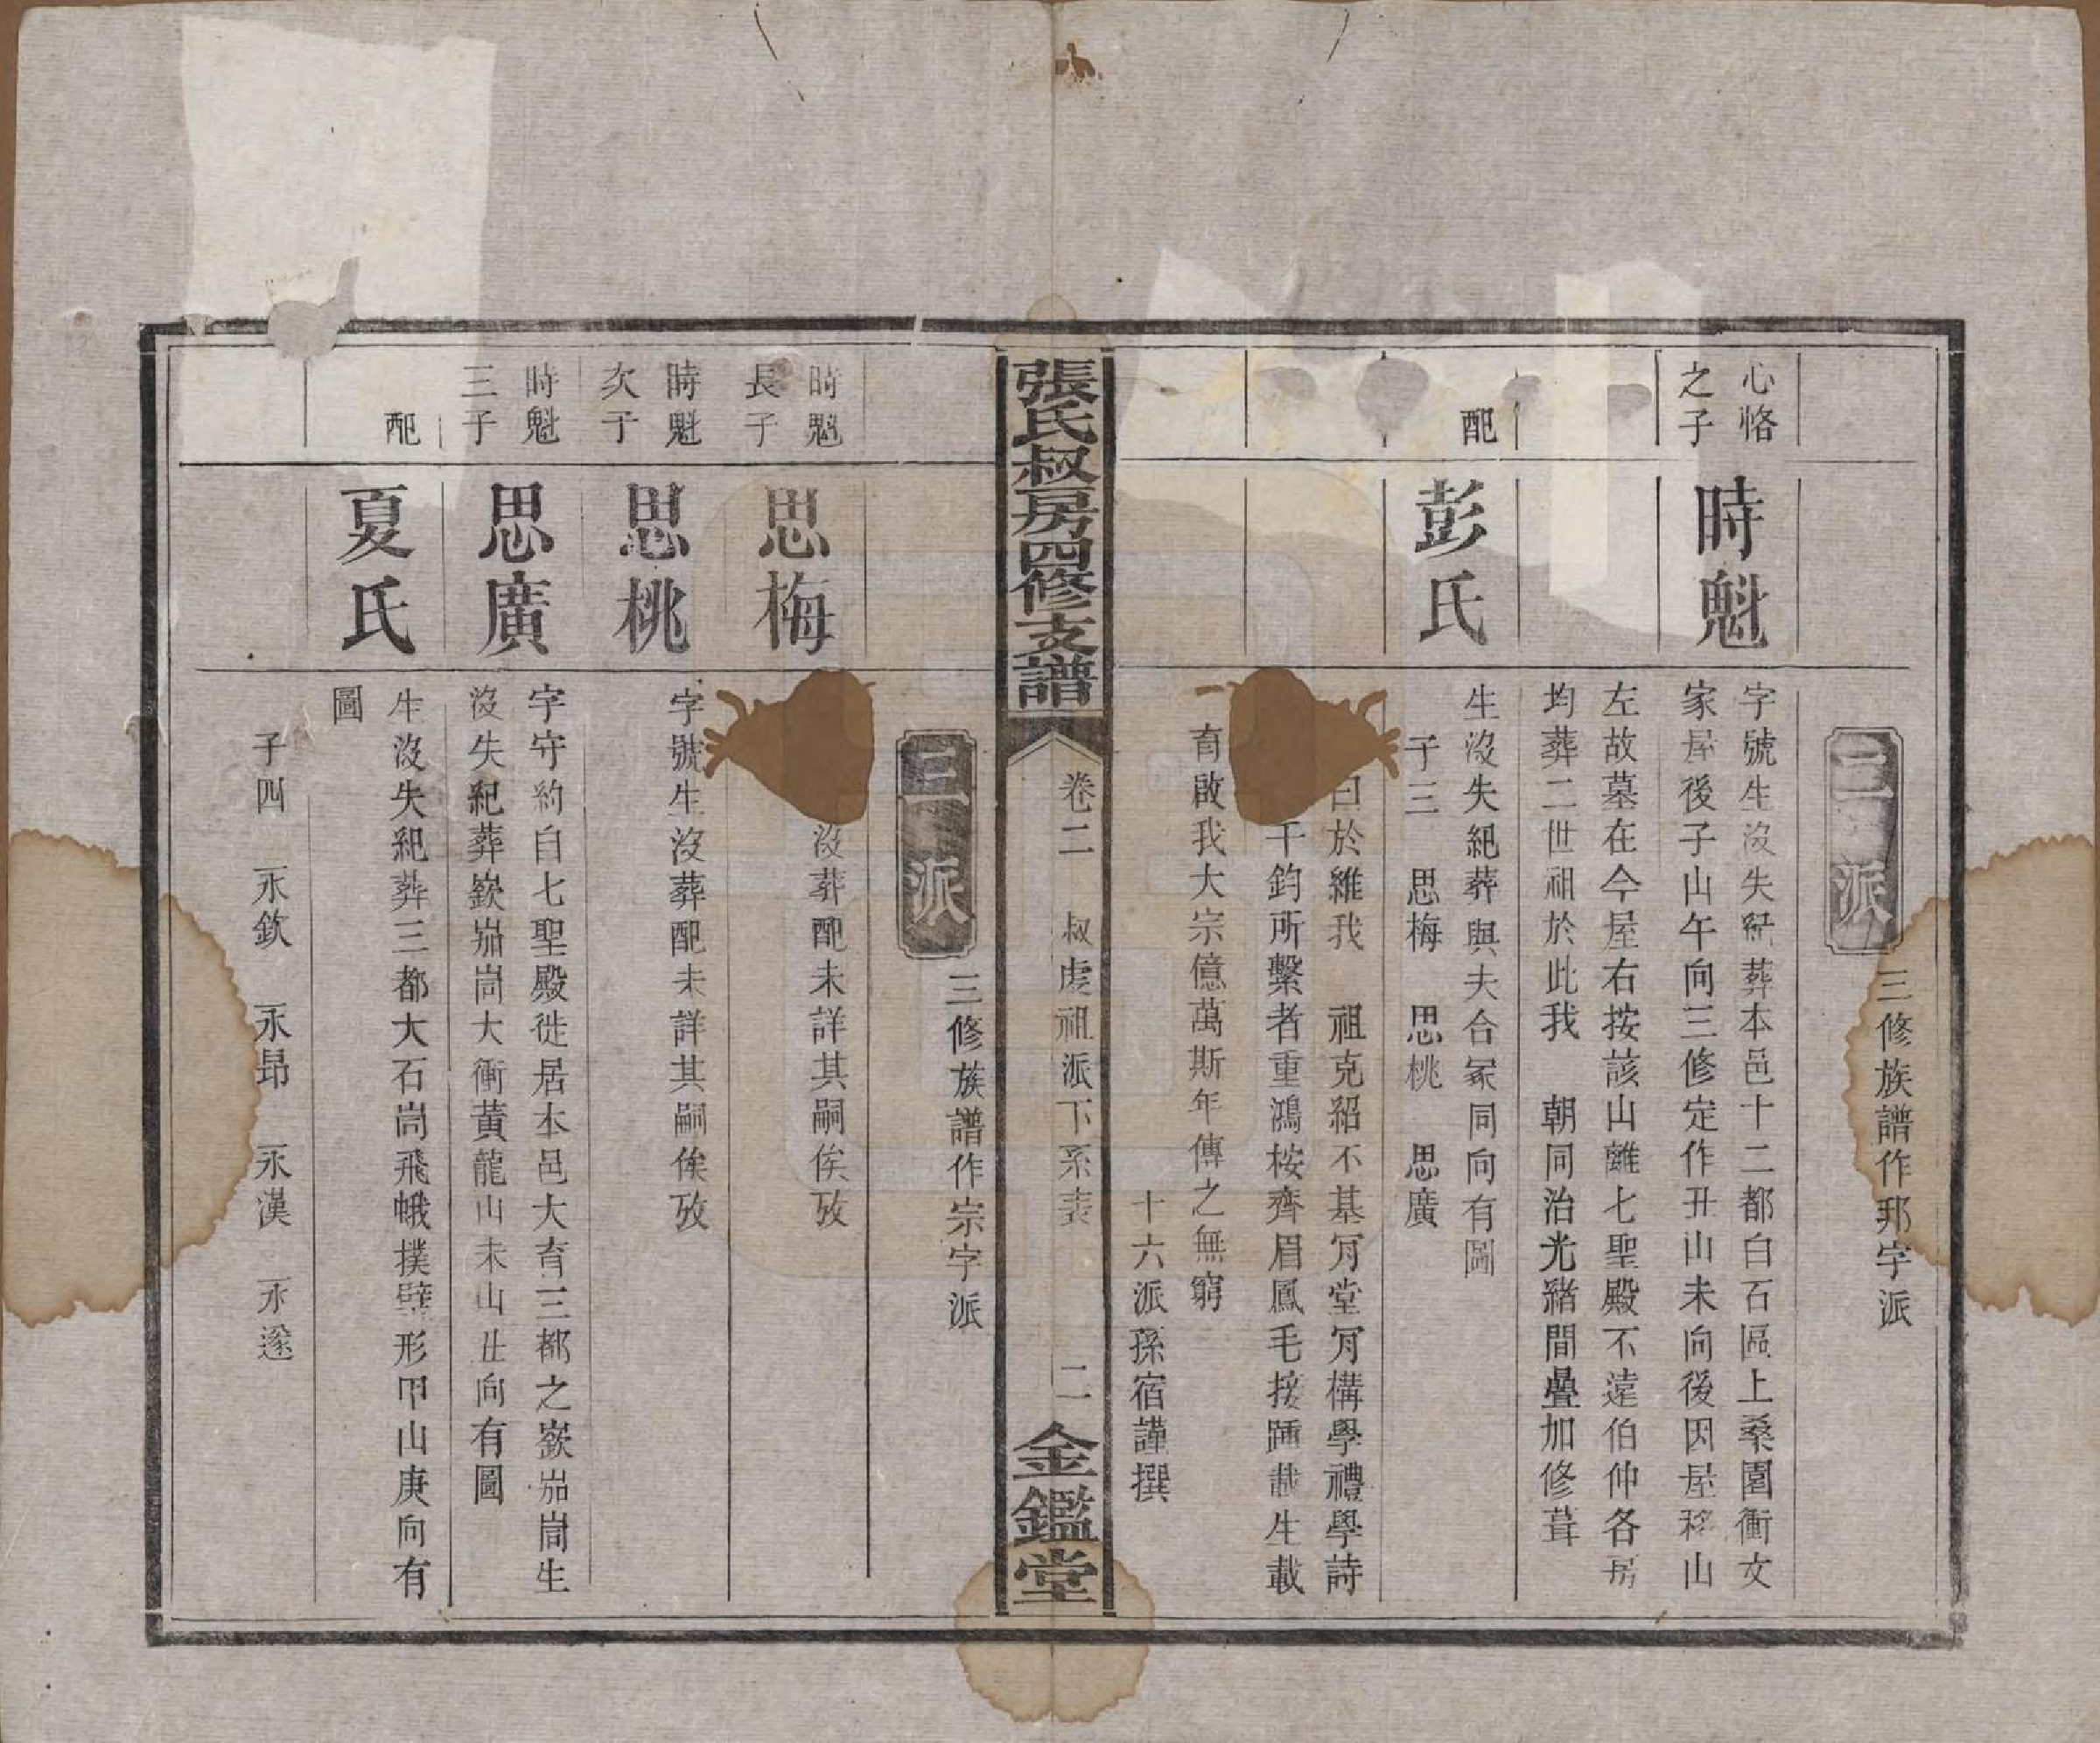 二派
三修族譜作邦字派
心恪
之子
時魁
字號生沒失紀葬本邑十二都白石區上桑園衝文
家屋後子山午向三修定作丑山未向後因屋移山
左故墓在今屋右按該山離七聖殿不遠伯仲各房
均葬二世祖於此我 朝同治光緒間疊加修葺
配
彭氏
生沒失紀葬與夫合冢同向有圖
子三 思梅 思桃 思廣
曰於維我 祖克紹不基肎堂肎構學禮學詩
千鈞所繫者重鴻桉齊眉鳳毛接踵載生載
育啟我大宗億萬斯年傳之無窮
十六派孫宿謹撰
張氏叔房四修支譜
卷二 叔虔祖派下系表 二
金鑑堂
三派
三修族譜作宗字派
時魁
長子
思梅
沒葬配未詳其嗣俟攷
時魁
次子
思桃
字號生沒葬配未詳其嗣俟攷
時魁
三子
思廣
字守約自七聖殿徙居本邑大育三都之嶔崩崗生
沒失紀葬嶔崩崗大衝黃龍山未山丑向有圖
配
夏氏
生沒失紀葬三都大石崗飛蛾撲壁形甲山庚向有
圖
子四 永欽 永昂 永漢 永遂